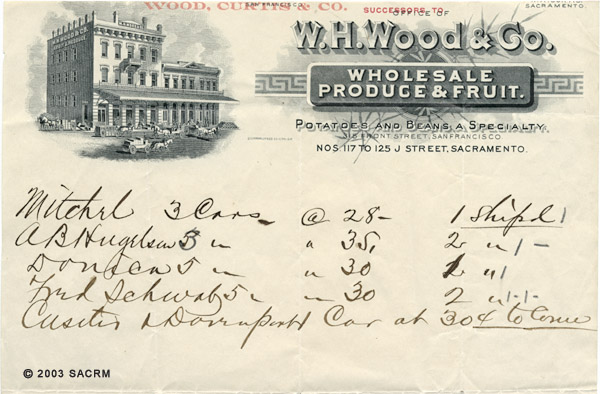 WOOD, CURTIS & CO.
SUCCESSORS TO
OFFICE OF
SACRAMENTO.
W.H. Wood & Co.
WHOLESALE
PRODUCE & FRUIT.
POTATOES AND BEANS, A SPECIALTY.
FRONT STREET, SAN FRANCISCO.
NOS 117 TO 125 J STREET, SACRAMENTO.
Mitchel 3 Cars @ 28- 1 Ship'd 1
A B Hugelson 3 " " 35, 2 " 1 -
5 " " 30 " 1
Fred Schwab 5 " " 30 2 " 1-1-
& Davenport Car at 30 4 to Come
© 2003 SACRM